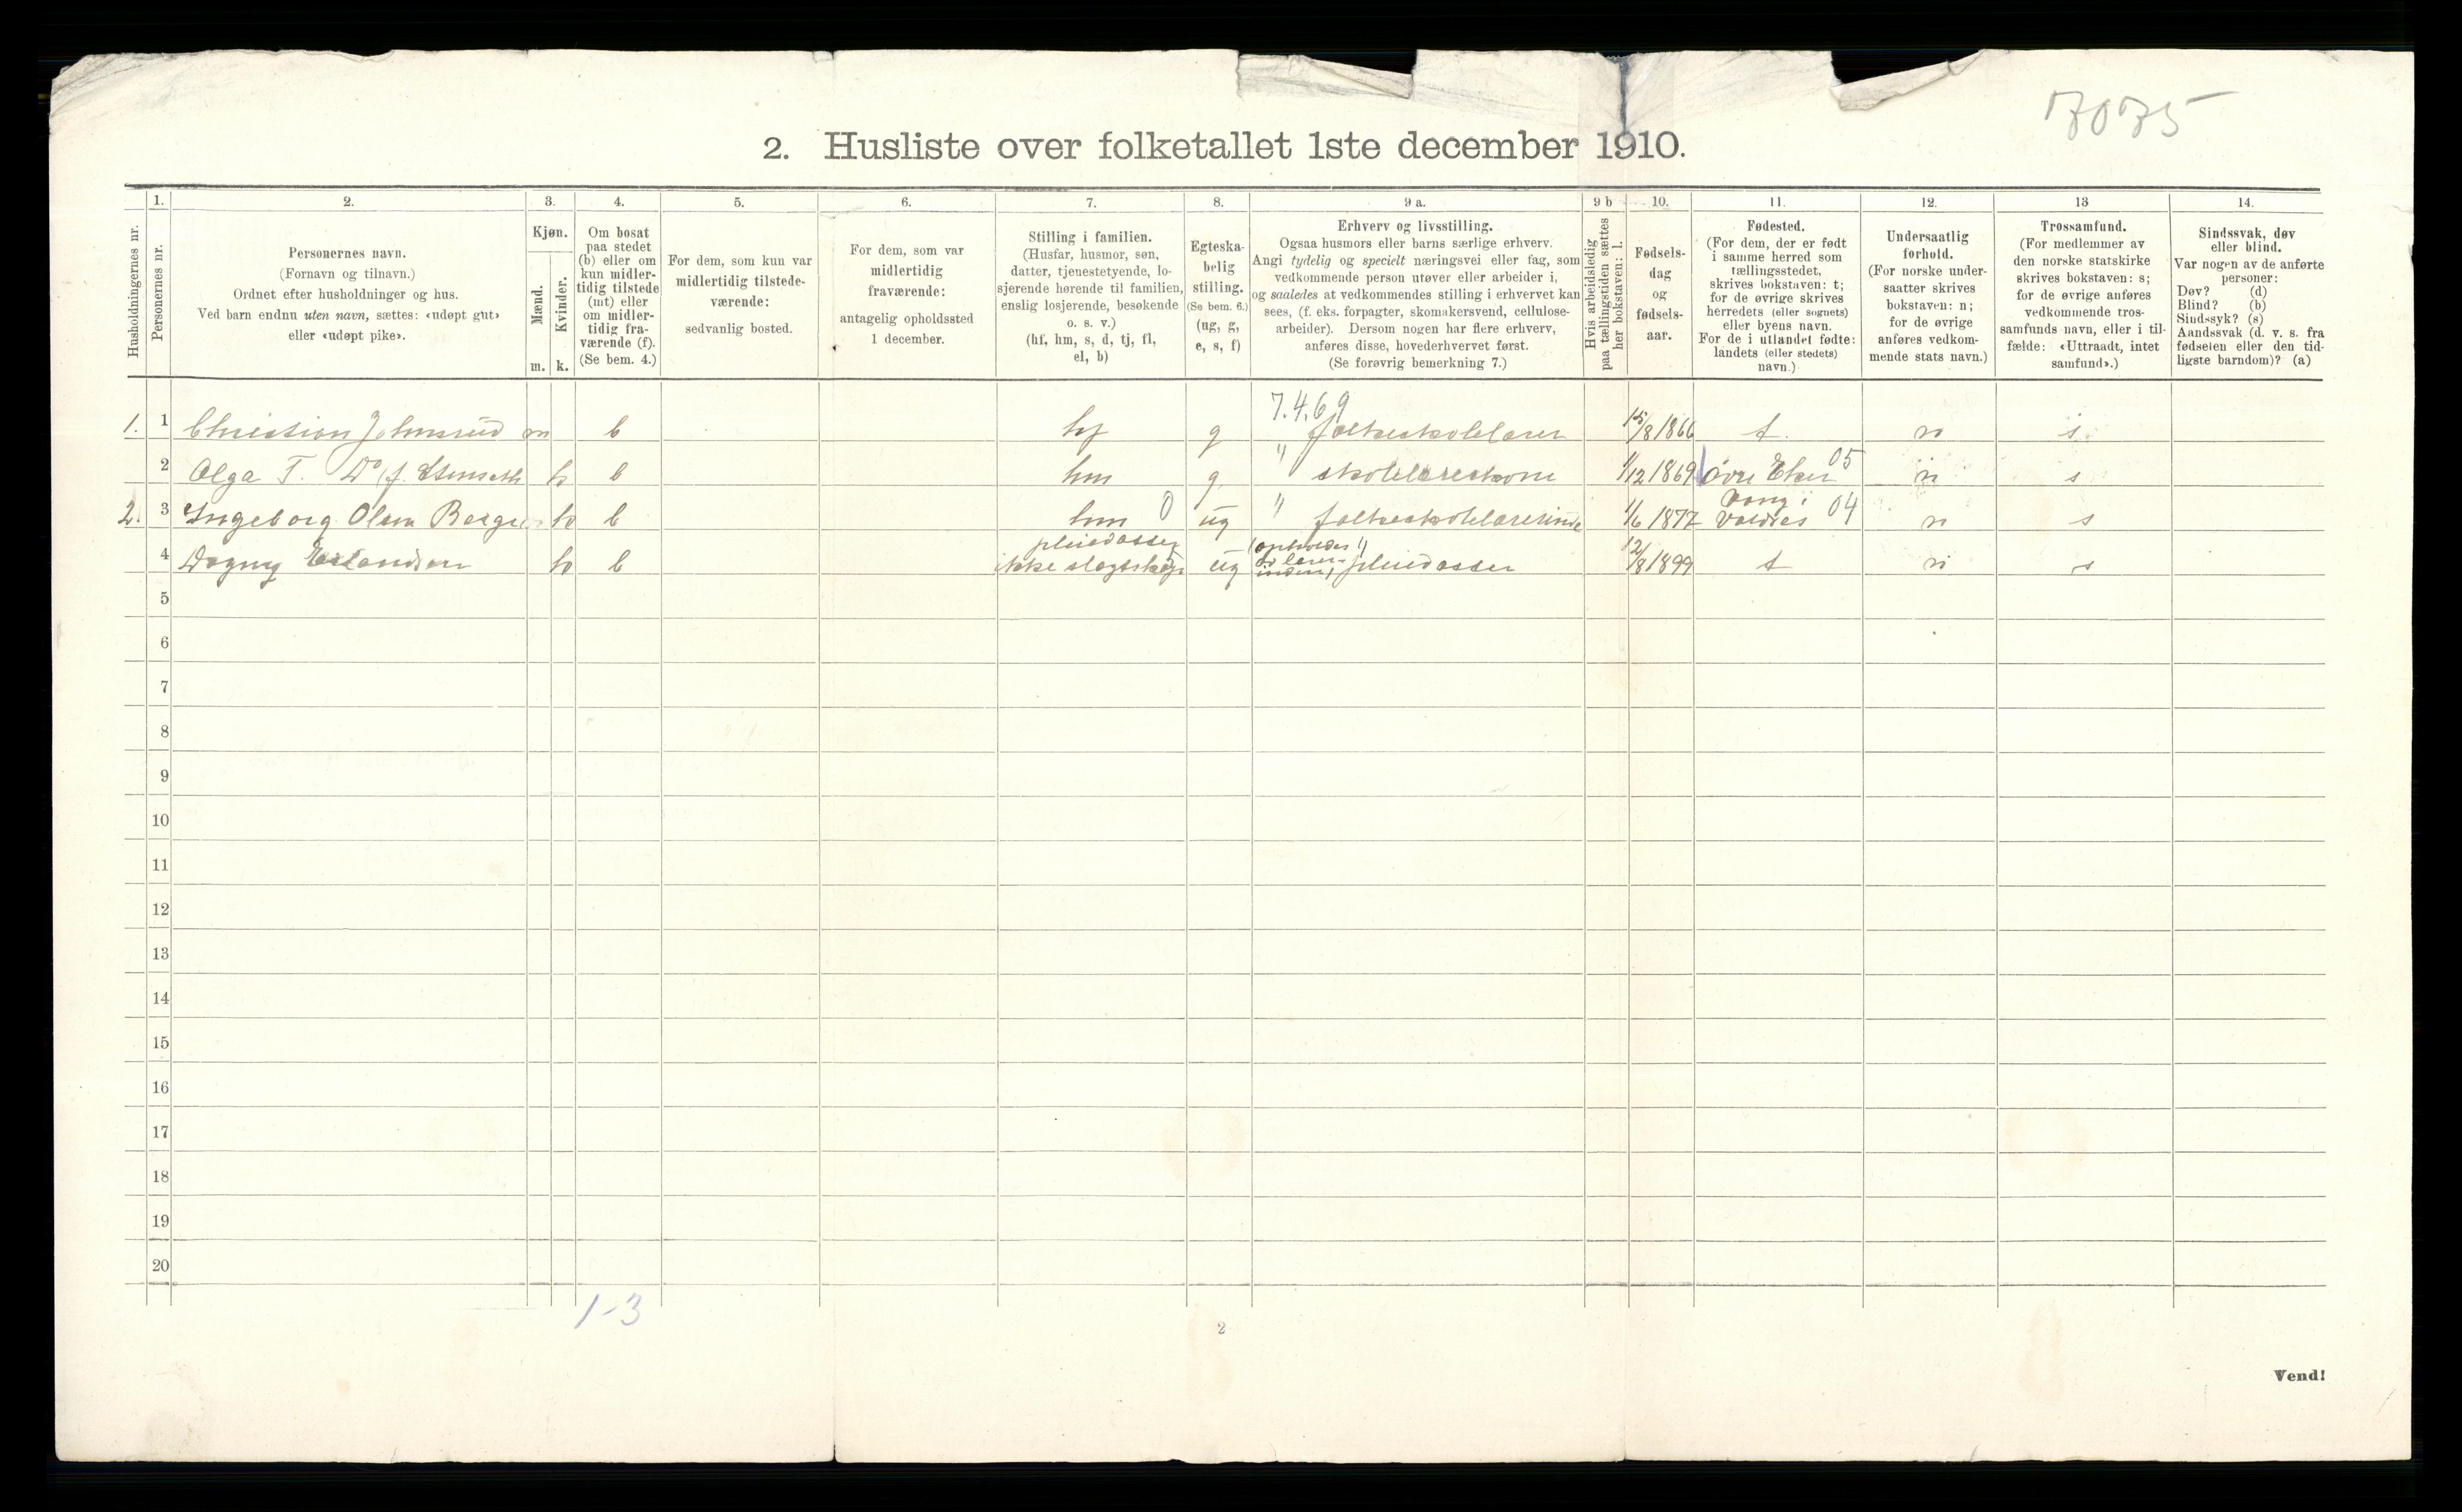 7075
2. Husliste over folketallet 1ste december 1910.
Husholdningernes nr.
1.
Personernes nr.
2.
Personernes navn.
(Fornavn og tilnavn.)
Ordnet efter husholdninger og hus.
Ved barn endnu uten navn, sættes: «udøpt gut»
eller «udøpt pike».
3.
Kjøn.
Mænd.
m.
Kvinder.
k.
4.
Om bosat
paa stedet
(b) eller om
kun midler-
tidig tilstede
(mt) eller
om midler-
tidig fra-
værende (f).
(Se bem. 4.)
5.
For dem, som kun var
midlertidig tilstede-
værende:
sedvanlig bosted.
6.
For dem, som var
midlertidig
fraværende:
antagelig opholdssted
1 december.
7.
Stilling i familien.
(Husfar, husmor, søn,
datter, tjenestetyende, lo-
sjerende hørende til familien,
enslig losjerende, besøkende
o. s. v.)
(hf, hm, s, d, tj, fl,
el, b)
8.
Egteska-
belig
stilling.
(Se bem. 6.)
(ug, g,
e, s, f)
9 a.
Erhverv og livsstilling.
Ogsaa husmors eller barns særlige erhverv.
Angi tydelig og specielt næringsvei eller fag, som
vedkommende person utøver eller arbeider i,
og saaledes at vedkommendes stilling i erhvervet kan
sees, (f. eks. forpagter, skomakersvend, cellulose-
arbeider). Dersom nogen har flere erhverv,
anføres disse, hovederhvervet først.
(Se forøvrig bemerkning 7.)
9 b
Hvis arbeidsledig
paa tællingstiden sættes
her bokstaven: l.
10.
Fødsels-
dag
og
fødsels-
aar.
11.
Fødested.
(For dem, der er født
i samme herred som
tællingsstedet,
skrives bokstaven: t;
for de øvrige skrives
herredets (eller sognets)
eller byens navn.
For de i utlandet fødte:
landets (eller stedets)
navn.)
12.
Undersaatlig
forhold.
(For norske under-
saatter skrives
bokstaven: n;
for de øvrige
anføres vedkom-
mende stats navn.)
13
Trossamfund.
(For medlemmer av
den norske statskirke
skrives bokstaven: s;
for de øvrige anføres
vedkommende tros-
samfunds navn, eller i til-
fælde: «Uttraadt, intet
samfund».)
14.
Sindssvak, døv
eller blind.
Var nogen av de anførte
personer:
Døv? (d)
Blind? (b)
Sindssyk? (s)
Aandssvak (d. v. s. fra
fødselen eller den tid-
ligste barndom)? (a)
7.4.69
1. 1 Christian Johnsrud m b hf g folkeskolelærer 15/8 1866 t. n s
2 Olga T. Do (f. Stenseth k b hm g " skolelærerskone 1/12 1869 Øvre Eker 05 n s
2. 3 Ingeborg Olsen Berge k b hm 0 ug " folkeskolelærerinde 1/6 1877 Vang i Valdres 04 n s
4 Dagny Erlandsen k b pleiedatter ikke slegtskap ug (opholder " pleiedatter 12/8 1899 t n s
5
6
7
8
9
10
11
12
13
14
15
16
17
18
19
20
1-3
2
Vend!